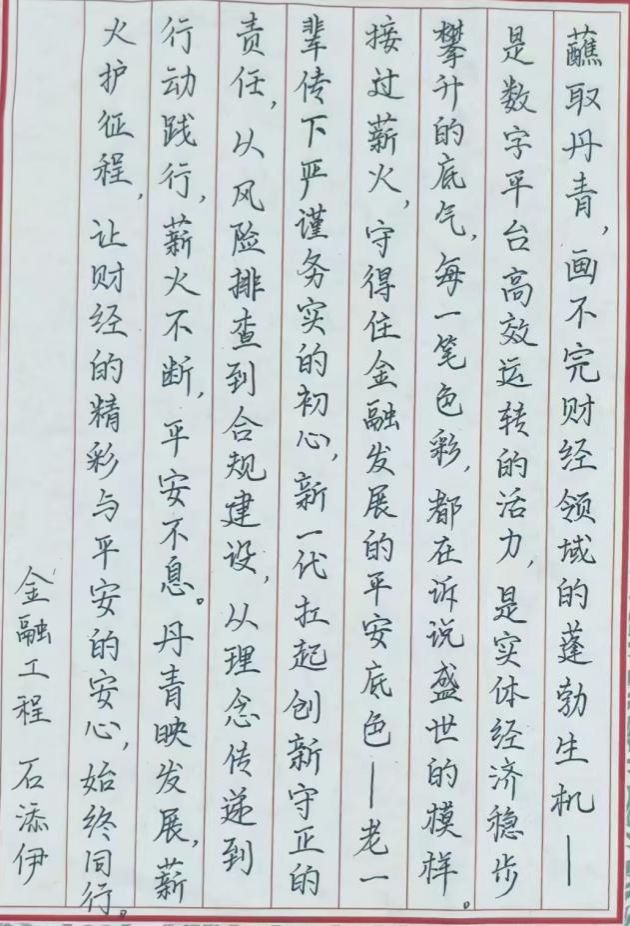 蘸取丹青，画不完财经领域的蓬勃生机—
是数字平台高效运转的活力，是实体经济稳步
攀升的底气，每一笔色彩，都在诉说盛世的模样。
接过薪火，守得住金融发展的平安底色—老一
辈传下严谨务实的初心，新一代扛起创新守正的
责任，从风险排查到合规建设，从理念传递到
行动践行，薪火不断，平安不息。丹青映发展，薪
火护征程，让财经的精彩与平安的安心，始终同行。
金融工程 石添伊